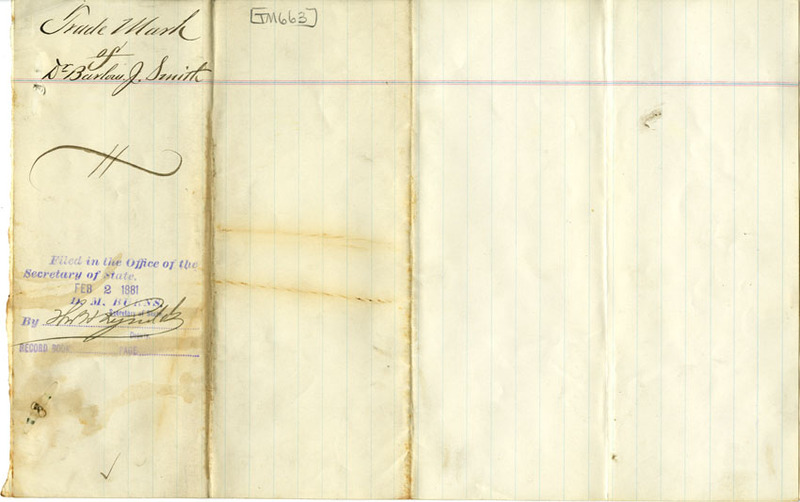 Trade Mark
of
Dr Barlow J. Smith
[TM663]
Filed in the Office of the
Secretary of State.
FEB 2 1881
D. M. BURNS
Secretary of State
By
Deputy
RECORD BOOK PAGE